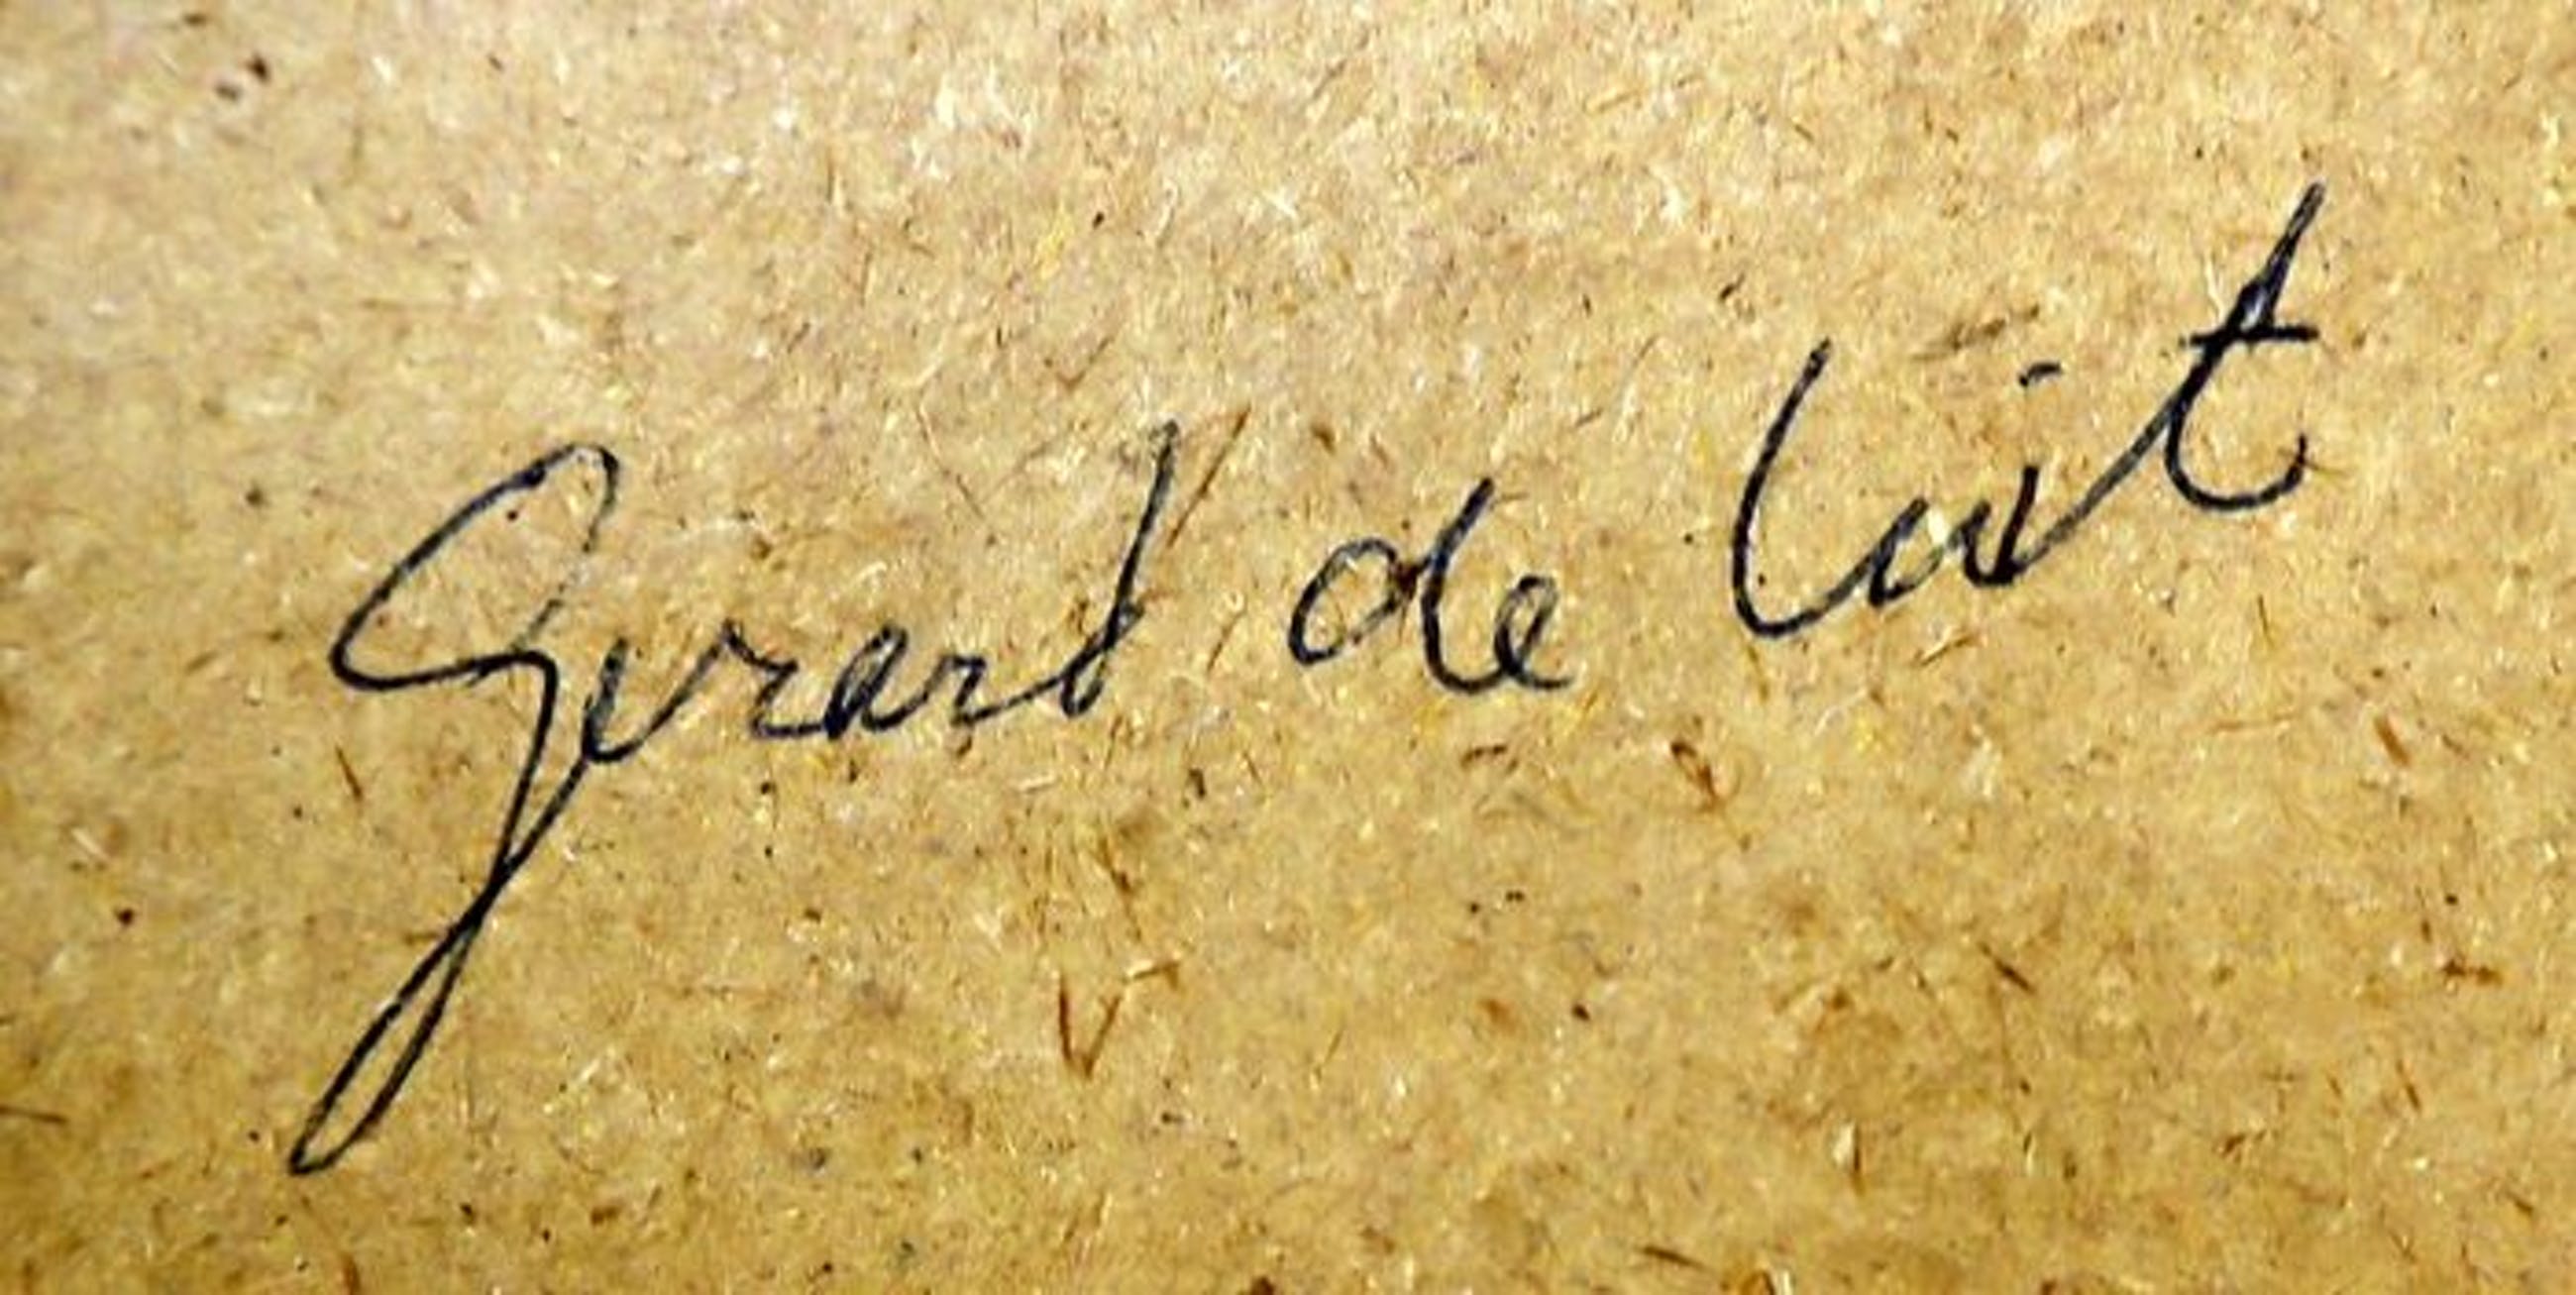 Gerard de Luit